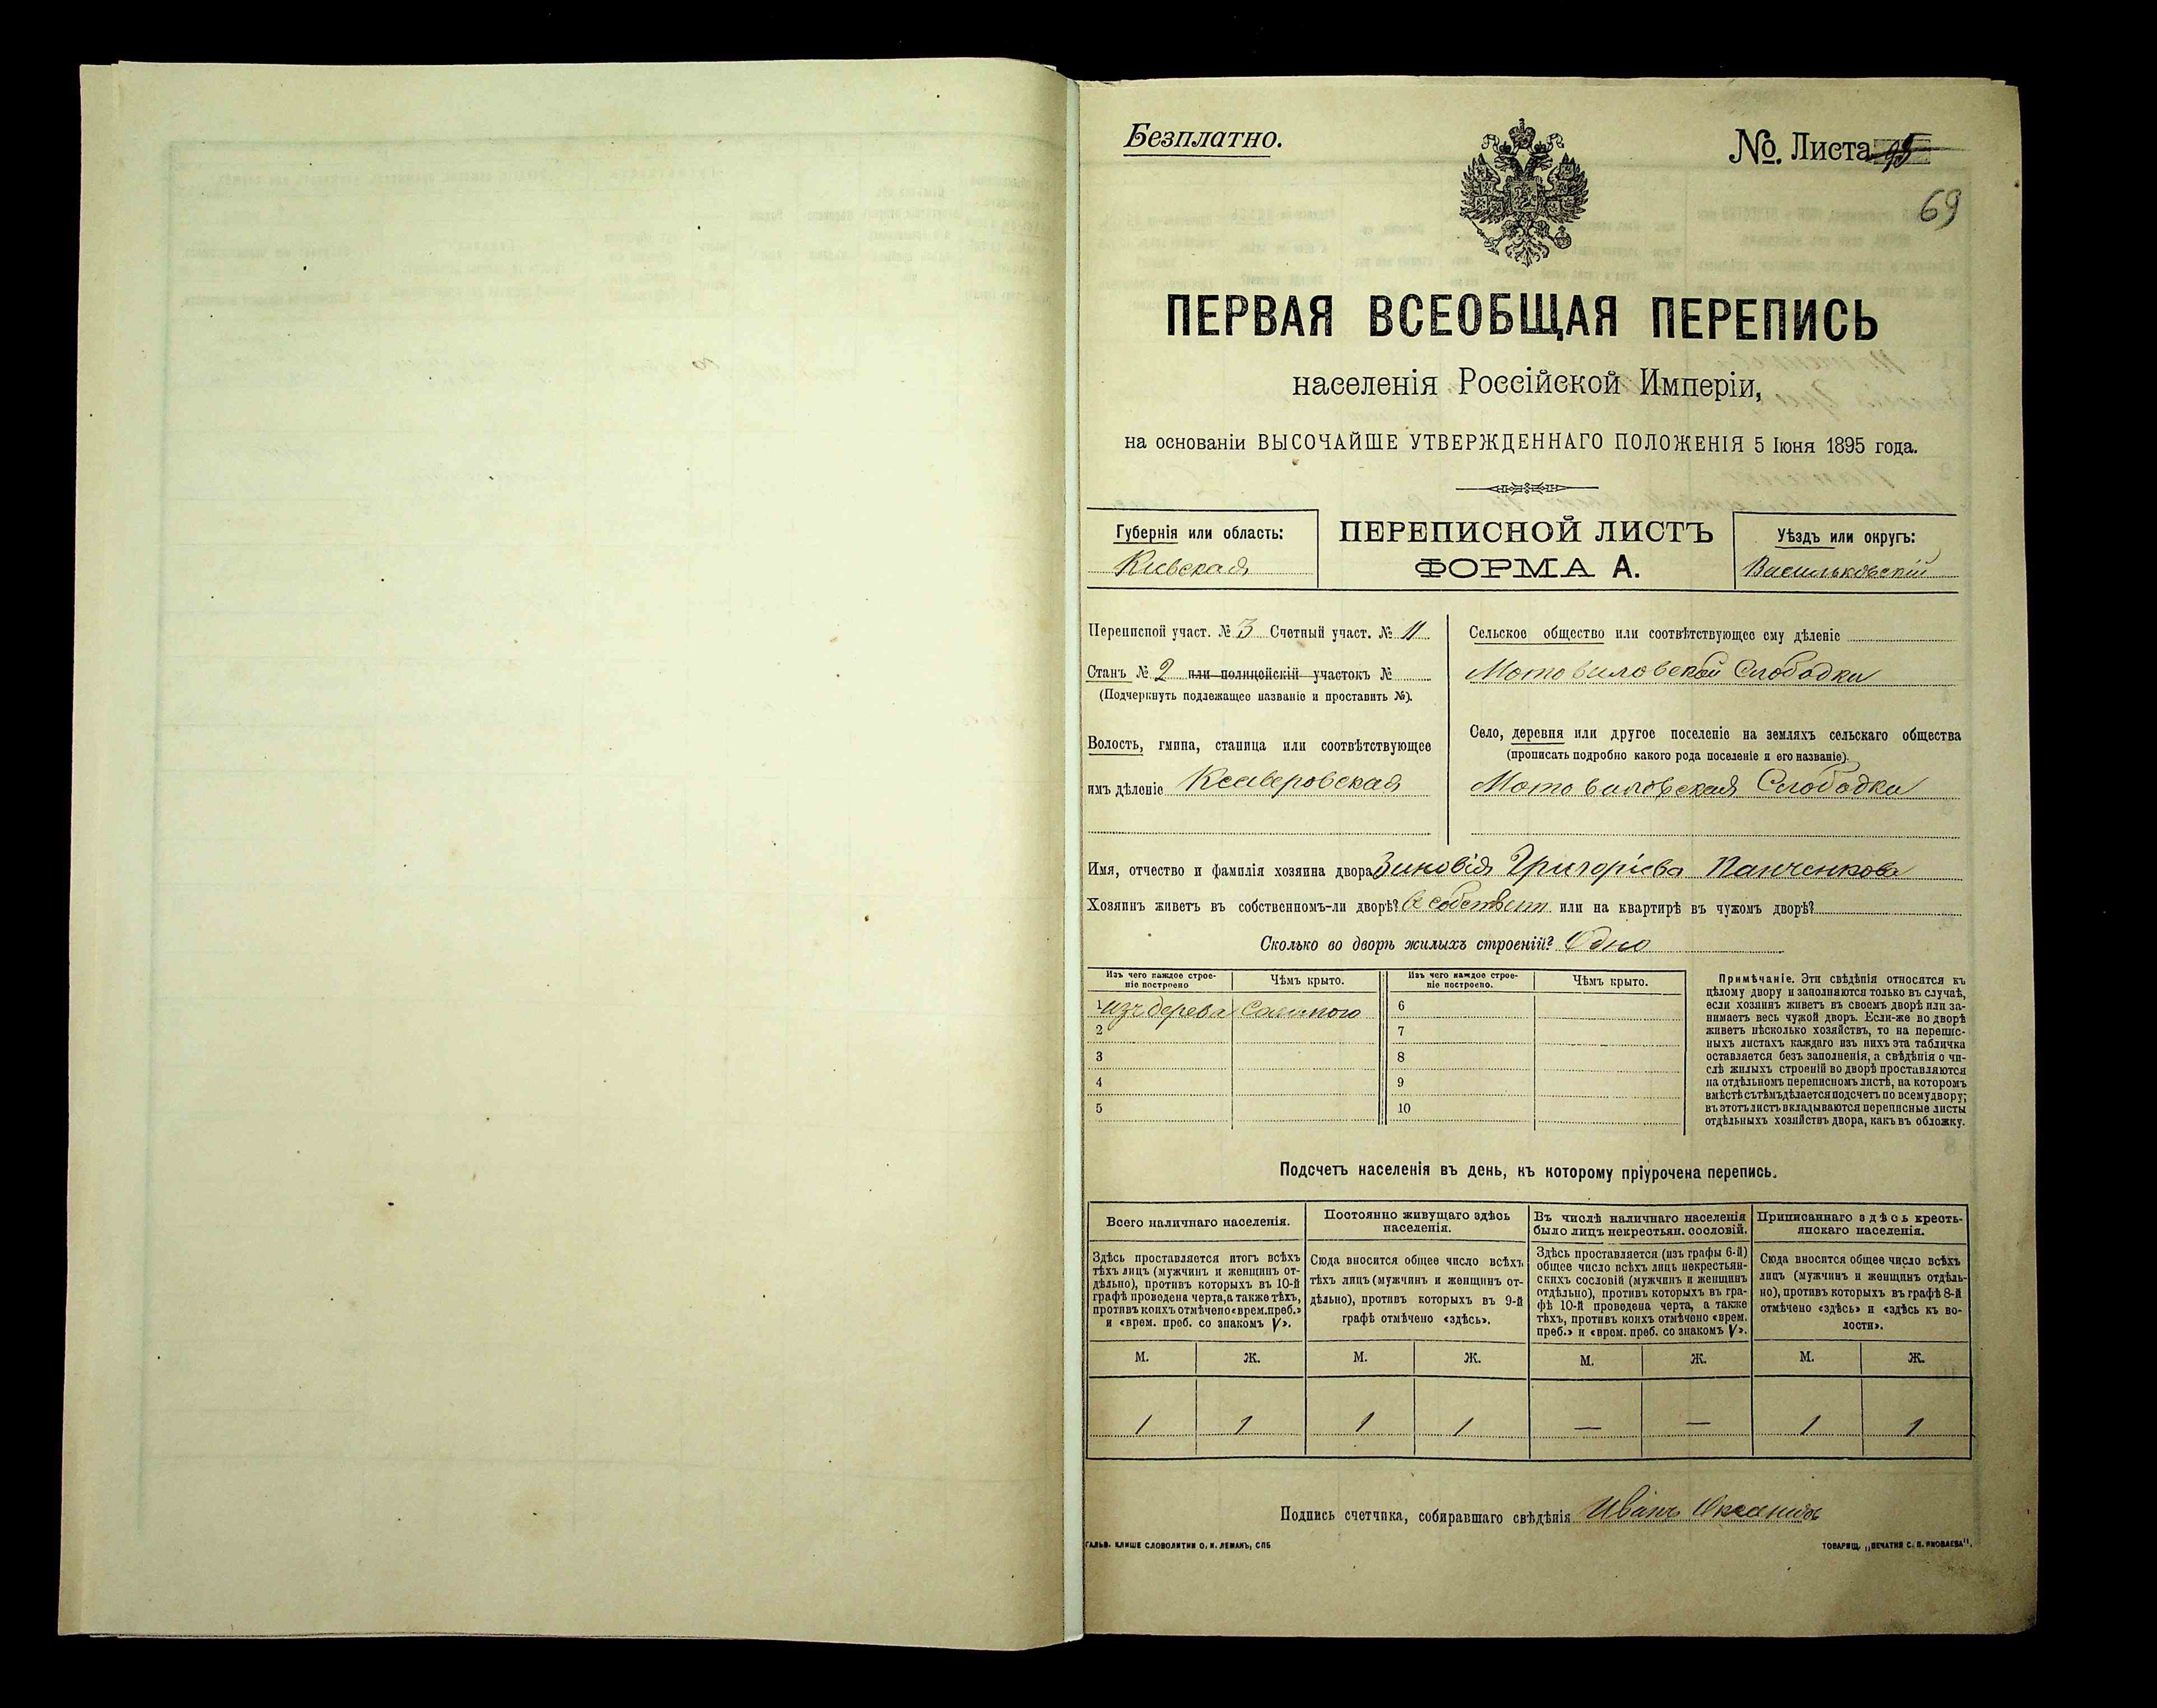 Безплатно.
№ Листа 95
69
ПЕРВАЯ ВСЕОБЩАЯ ПЕРЕПИСЬ
населенія Россійской Имперіи,
на основаніи ВЫСОЧАЙШЕ УТВЕРЖДЕННАГО ПОЛОЖЕНІЯ 5 Іюня 1895 года.
Губернія или область:
Кіевская
ПЕРЕПИСНОЙ ЛИСТЪ
ФОРМА А.
Уѣздъ или округъ:
Васильковскій
Переписной участ. № 3 Счетный участ. № 11
Станъ № 2 или полицейскій участокъ №
(Подчеркнуть подлежащее названіе и проставить №).
Волость, гмина, станица или соотвѣтствующее
имъ дѣленіе Ксаверовская
Сельское общество или соотвѣтствующее ему дѣленіе
Мотовиловской Слободки
Село, деревня или другое поселеніе на земляхъ сельскаго общества
(прописать подробно какого рода поселеніе и его названіе).
Мотовиловская Слободка
Имя, отчество и фамилія хозяина двора Зиновія Григоріева Панченкова
Хозяинъ живетъ въ собственномъ-ли дворѣ? В собствен или на квартирѣ въ чужомъ дворѣ?
Сколько во дворѣ жилыхъ строеній? Одно
Изъ чего каждое строе-
ніе построено
Чѣмъ крыто.
Изъ чего каждое строе-
ніе построено.
Чѣмъ крыто.
1 изъ дерева Соломою 6
2 7
3 8
4 9
5 10
Примѣчаніе. Эти свѣдѣнія относятся къ
цѣлому двору и заполняются только въ случаѣ,
если хозяинъ живетъ въ своемъ дворѣ или за-
нимаетъ весь чужой дворъ. Если-же во дворѣ
живетъ нѣсколько хозяйствъ, то на перепис-
ныхъ листахъ каждаго изъ нихъ эта табличка
оставляется безъ заполненія, а свѣдѣнія о чи-
слѣ жилыхъ строеній во дворѣ проставляются
на отдѣльномъ переписномъ листѣ, на которомъ
вмѣстѣ съ тѣмъ дѣлается подсчетъ по всему двору;
въ этотъ листъ вкладываются переписные листы
отдѣльныхъ хозяйствъ двора, какъ въ обложку.
Подсчетъ населенія въ день, къ которому пріурочена перепись.
Всего наличнаго населенія.
Здѣсь проставляется итогъ всѣхъ
тѣхъ лицъ (мужчинъ и женщинъ от-
дѣльно), противъ которыхъ въ 10-й
графѣ проведена черта, а также тѣхъ,
противъ коихъ отмѣчено «врем. преб.»
и «врем. преб. со знакомъ V».
Постоянно живущаго здѣсь
населенія.
Сюда вносится общее число всѣхъ
тѣхъ лицъ (мужчинъ и женщинъ от-
дѣльно), противъ которыхъ въ 9-й
графѣ отмѣчено «здѣсь».
Въ числѣ наличнаго населенія
было лицъ некрестьян. сословій.
Здѣсь проставляется (изъ графы 6-й)
общее число всѣхъ лицъ некрестьян-
скихъ сословій (мужчинъ и женщинъ
отдѣльно), противъ которыхъ въ гра-
фѣ 10-й проведена черта, а также
тѣхъ, противъ коихъ отмѣчено «врем.
преб.» и «врем. преб. со знакомъ V».
Приписаннаго здѣсь кресть-
янскаго населенія.
Сюда вносится общее число всѣхъ
лицъ (мужчинъ и женщинъ отдѣль-
но), противъ которыхъ въ графѣ 8-й
отмѣчено «здѣсь» и «здѣсь къ во-
лости».
М. Ж. М. Ж. М. Ж. М. Ж.
1 1 1 1 — — 1 1
Подпись счетчика, собиравшаго свѣдѣнія Иванъ
ГАЛЬВ. КЛИШЕ СЛОВОЛИТНИ О. И. ЛЕМАНЪ, СПБ
ТОВАРИЩ. „ПЕЧАТНЯ С. П. ЯКОВЛЕВА".